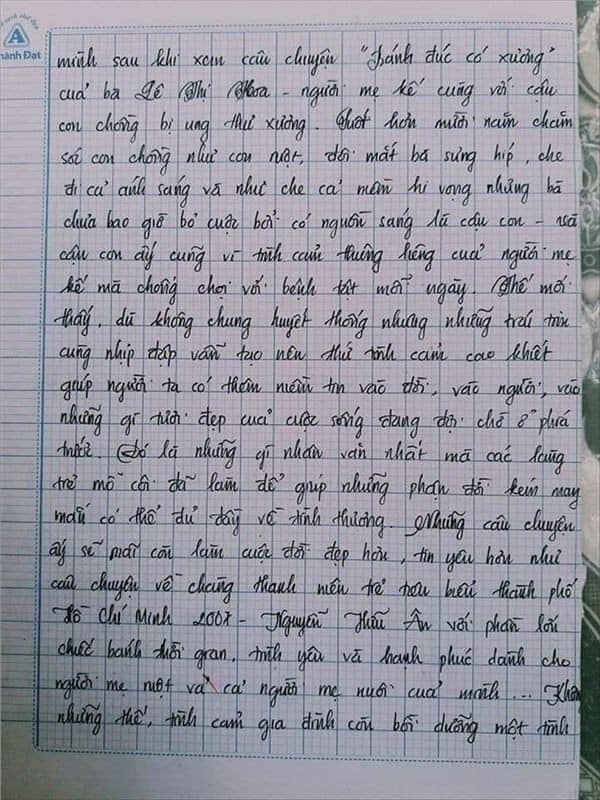 A
hành Đạt
mình sau khi xem câu chuyện "Bánh đúc có xương"
của bà Lê Thị Hoa - người mẹ kế cùng với cậu
con chồng bị ung thư xương. Suốt hơn mười năm chăm
sóc con chồng như con ruột, đôi mắt bà sưng híp, che
đi cả ánh sáng và như che cả mầm hi vọng nhưng bà
chưa bao giờ bỏ cuộc bởi có nguồn sáng là cậu con - và
cậu con ấy cũng vì tình cảm thiêng liêng của người mẹ
kế mà chống chọi với bệnh tật mỗi ngày. Thế mới
thấy, dù không chung huyết thống nhưng những trái tim
cùng nhịp đập vẫn tạo nên thứ tình cảm cao khiết
giúp người ta có thêm niềm tin vào đời, vào người, vào
những gì tươi đẹp của cuộc sống đang đợi chờ ở phía
trước. Đó là những gì nhân văn nhất mà các làng
trẻ mồ côi đã làm để giúp những phận đời kém may
mắn có thể đủ đầy về tình thương. Những câu chuyện
ấy sẽ mãi còn làm cuộc đời đẹp hơn, tin yêu hơn như
câu chuyện về chàng thanh niên trẻ tiêu biểu thành phố
Hồ Chí Minh 2007 - Nguyễn Hữu Ân với phần lớn
chiếc bánh thời gian, tình yêu và hạnh phúc dành cho
người mẹ ruột và cả người mẹ nuôi của mình... Không
những thế, tình cảm gia đình còn bồi dưỡng một tình